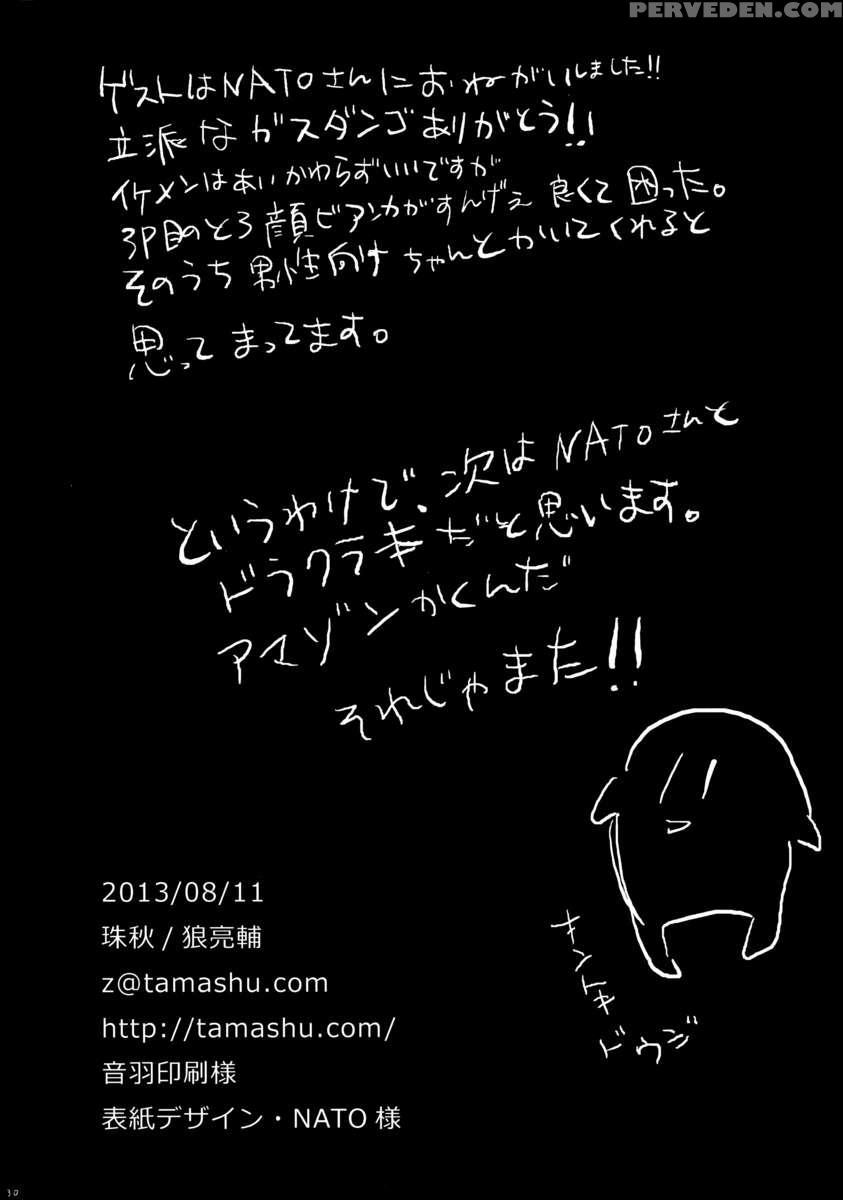 PERVEDEN.COM
ゲストはNATOさんにおねがいしました!!
立派なガスダンゴありがとう!!
イケメンはあいかわらずいいですが
3P目のとろ顔ビアンカがすんげぇ 良くて 困った。
そのうち 男性向け ちゃんとかいてくれると
思って まってます。
というわけで、次は NATOさんと
ドラクラ本だと思います。
アマゾンかくんだ
それじゃまた!!
キントキ
ドウジ
2013/08/11
珠秋/狼亮輔
z@tamashu.com
http://tamashu.com/
音羽印刷様
表紙デザイン・NATO様
30